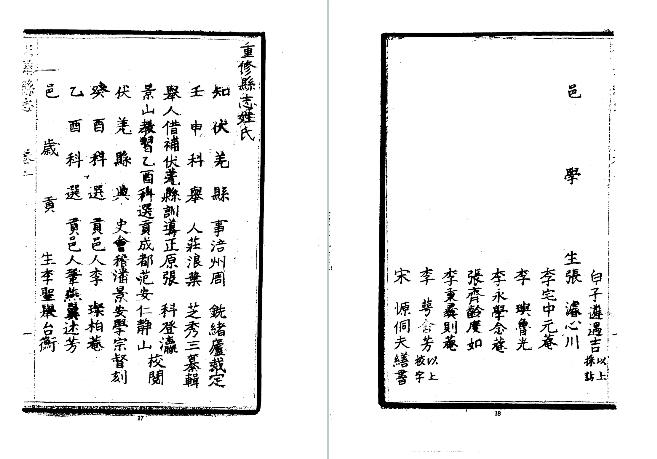 重修縣志姓氏
知伏羌縣事涪州周銑緒廬裁定
壬申科舉人莊浪葉芝秀三纂輯
舉人借補伏羌縣訓導正原張科登瀛
景山教習乙酉科選貢成都范安仁靜山校閱
伏羌縣典史會稽潘景安學宗督刻
癸酉科選貢邑人李璨柏菴
乙酉科選貢邑人鞏燕翼述芳
邑歲貢生李聖璵台衡
卷
17
白子遴遇吉以上採訪
邑學生張濬心川
李定中元菴
李璵魯光
李永學念菴
張齊齡慶如
李秉彝則菴
李蕚含芳以上校字
宋源侗夫繕書
18